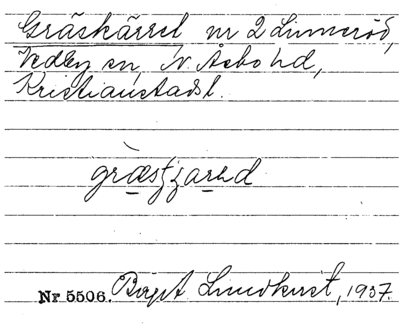 Gräskärret nr 2 Linneröd,
Vedby sn, N. Åsbo hd,
Kristianstads l.
græstjared
Nr 5506. Birgit Lundkvist, 1937.